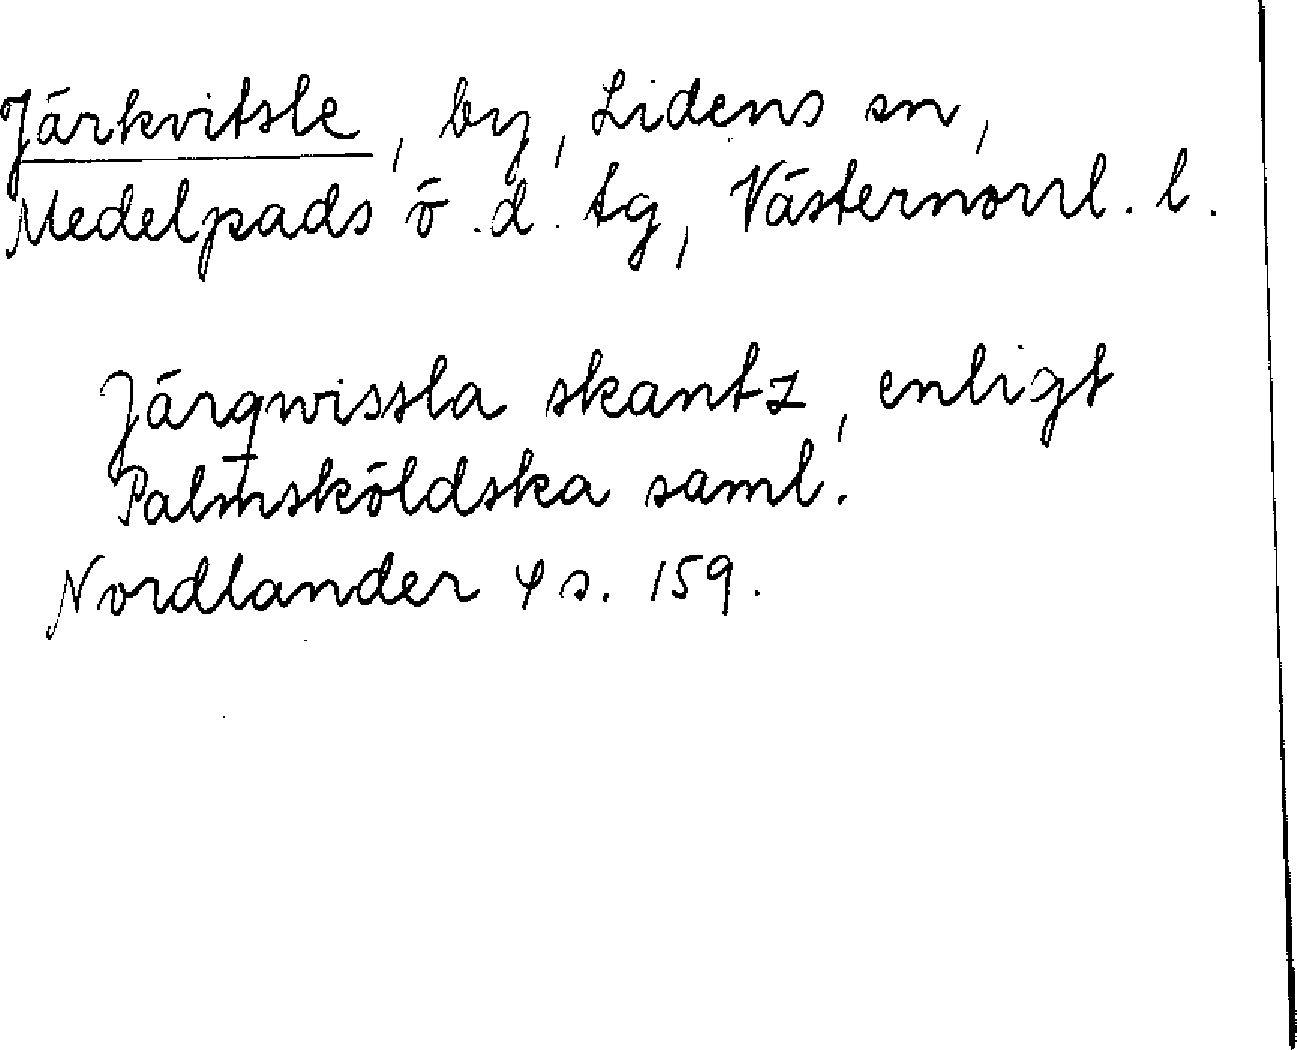 Järkvitsle, by, Lidens sn,
Medelpads ö.d. tg, Västernorrl. l.
Järqwissla skantz, enligt
Palmsköldska saml.
Nordlander 4 s. 159.